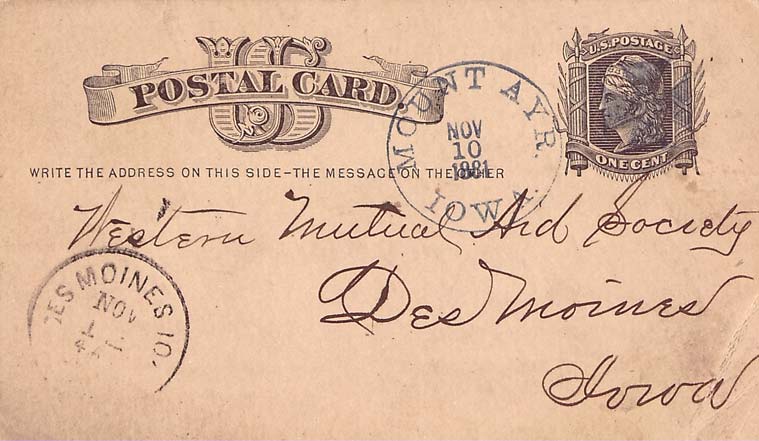 US
POSTAL CARD
U.S. POSTAGE
ONE CENT
MOUNT AYR.
NOV
10
1881
IOWA
WRITE THE ADDRESS ON THIS SIDE–THE MESSAGE ON THE OTHER
Western Mutual Aid Society
Des Moines
Iowa
DES MOINES IO.
NOV